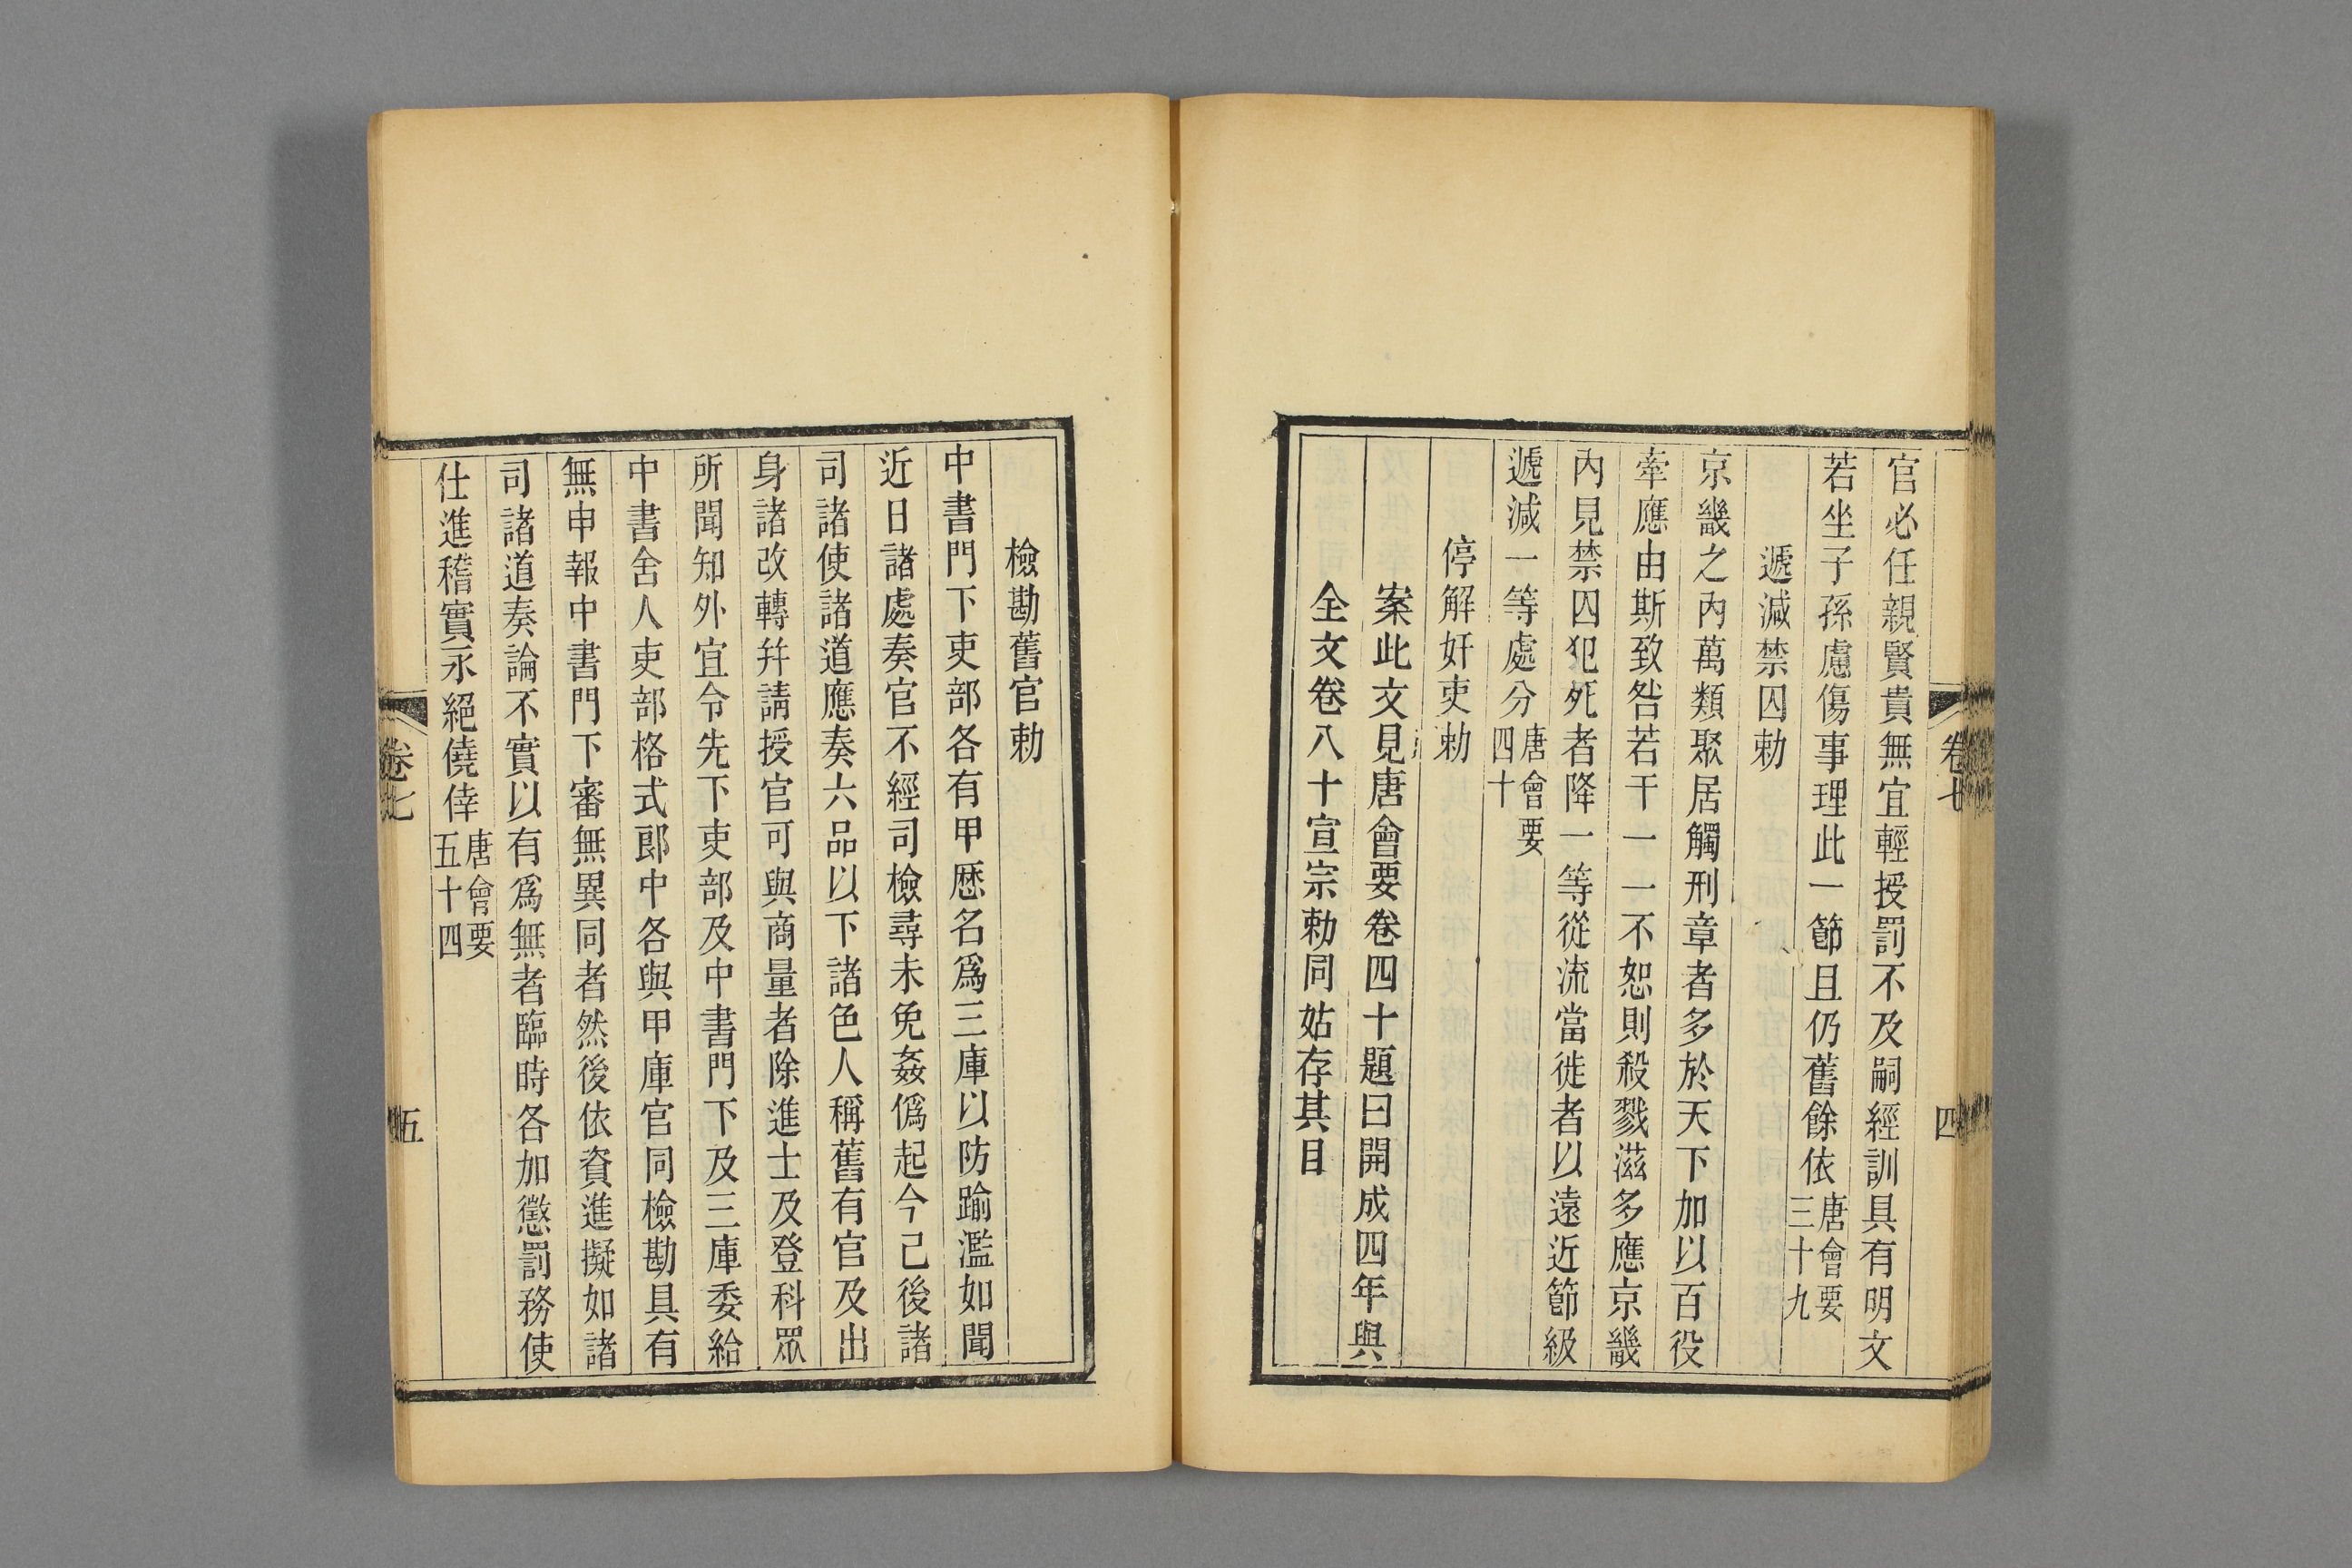 官必任親賢貴無宜輕授罰不及嗣經訓具有明文
若坐子孫慮傷事理此一節且仍舊餘依唐會要三十九
遞減禁囚勅
京畿之內萬類聚居觸刑章者多於天下加以百役
牽應由斯致咎若干一一不恕則殺戮滋多應京畿
內見禁囚犯死者降一等從流當徙者以遠近節級
遞減一等處分唐會要四十
停解奸吏勅
案此文見唐會要卷四十題曰開成四年與
全文卷八十宣宗勅同姑存其目
卷七
四
檢勘舊官勅
中書門下吏部各有甲歷名爲三庫以防踰濫如聞
近日諸處奏官不經司檢尋未免姦僞起今已後諸
司諸使諸道應奏六品以下諸色人稱舊有官及出
身諸改轉幷請授官可與商量者除進士及登科眾
所聞知外宜令先下吏部及中書門下及三庫委給
中書舍人吏部格式郎中各與甲庫官同檢勘具有
無申報中書門下審無異同者然後依資進擬如諸
司諸道奏論不實以有爲無者臨時各加懲罰務使
仕進稽實永絕僥倖唐會要五十四
卷七
五